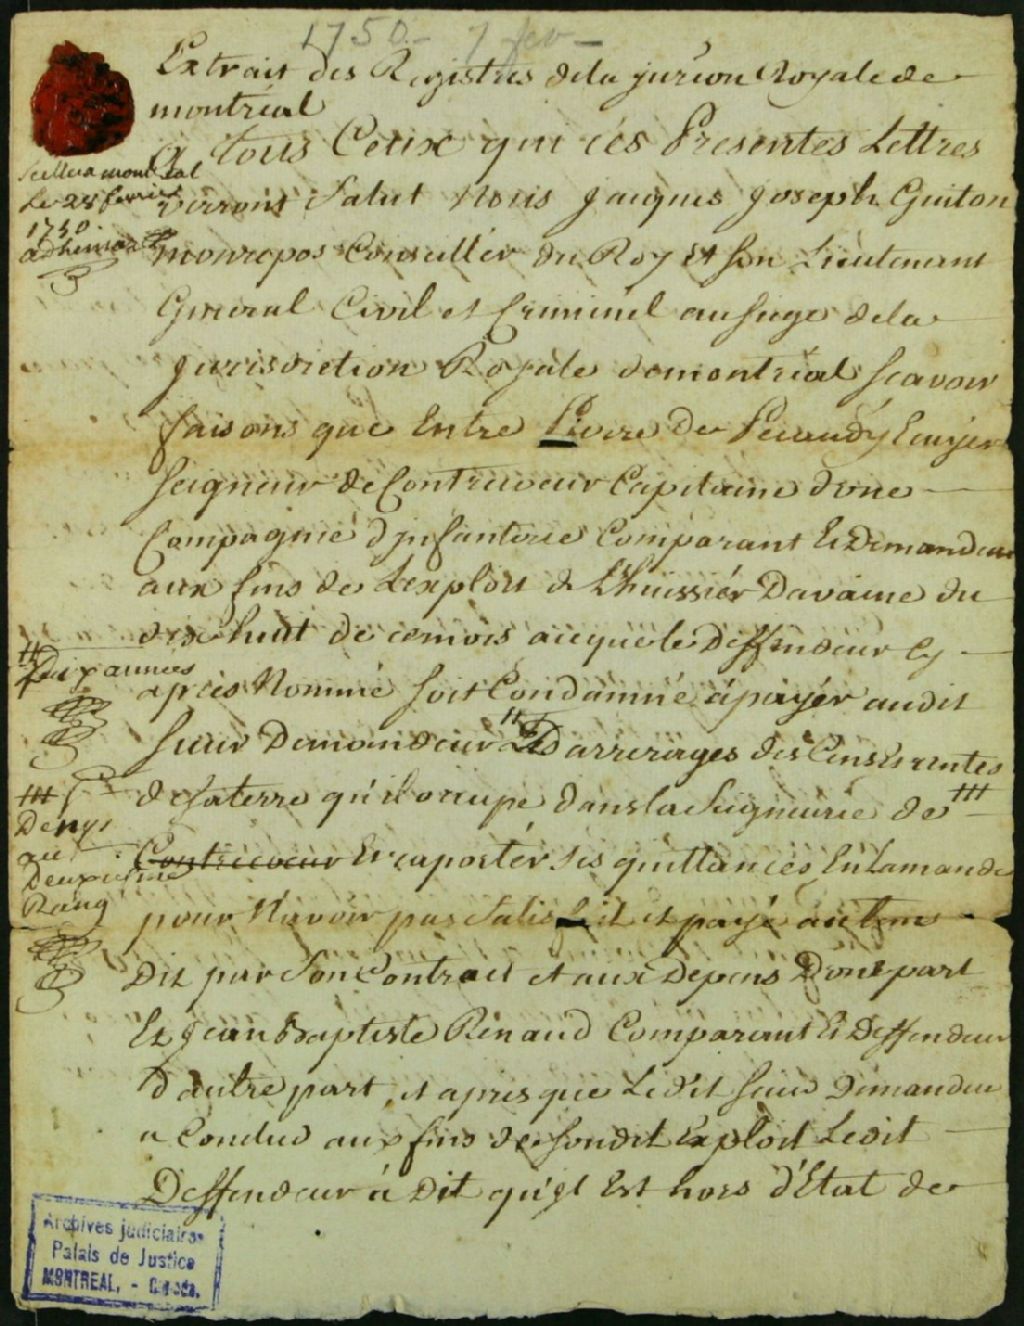 1750 - 7 fev -
Extrait des Registres dela jur.on Royale de
montréal
A tous Ceux qui ces Presentes Lettres
verront Salut Nous Jacques Joseph Guiton
monrepos Conseiller du Roy et son Lieutenant
General Civil et Criminel au siege dela
jurisdiction Royale demontréal scavoir
faisons que Entre Pierre de Pecaudy Ecuyer
seigneur de Contrecoeur Capitaine dune
Compagnie d'jnfanterie Comparant Et Demandeur
aux fins de Lexploit de L'huissiér Davaine du
dix huit de cemois aceque le Deffendeur Cy
aprés Nommé soit Condamné àpayér audit
sieur Demandeur # D'arrerages des Cens et rentes
de sa terre qu'il occupe dans la Seigneurie de ###
Contrecoeur Et raporter ses quittances En Lamande
pour N'avoir pas Satisfait et payé au tems
Dit par Son Contract et aux Depens D'une part
Et Jean Baptiste Renaud Comparant Et Deffendeur
d'autre part, et apres que Le dit sieur Demandeur
a Conclud aux fins de sondit Exploit Ledit
Deffendeur à Dit qu'jl Est hors d'Etat de
Scellé a montréal
Le 28 fevrier
1750
adhemar
#
Dix années
###
St
Denys
au
Deuxieme
Rang
Archives judiciaires
Palais de Justice
MONTREAL. - Canada.